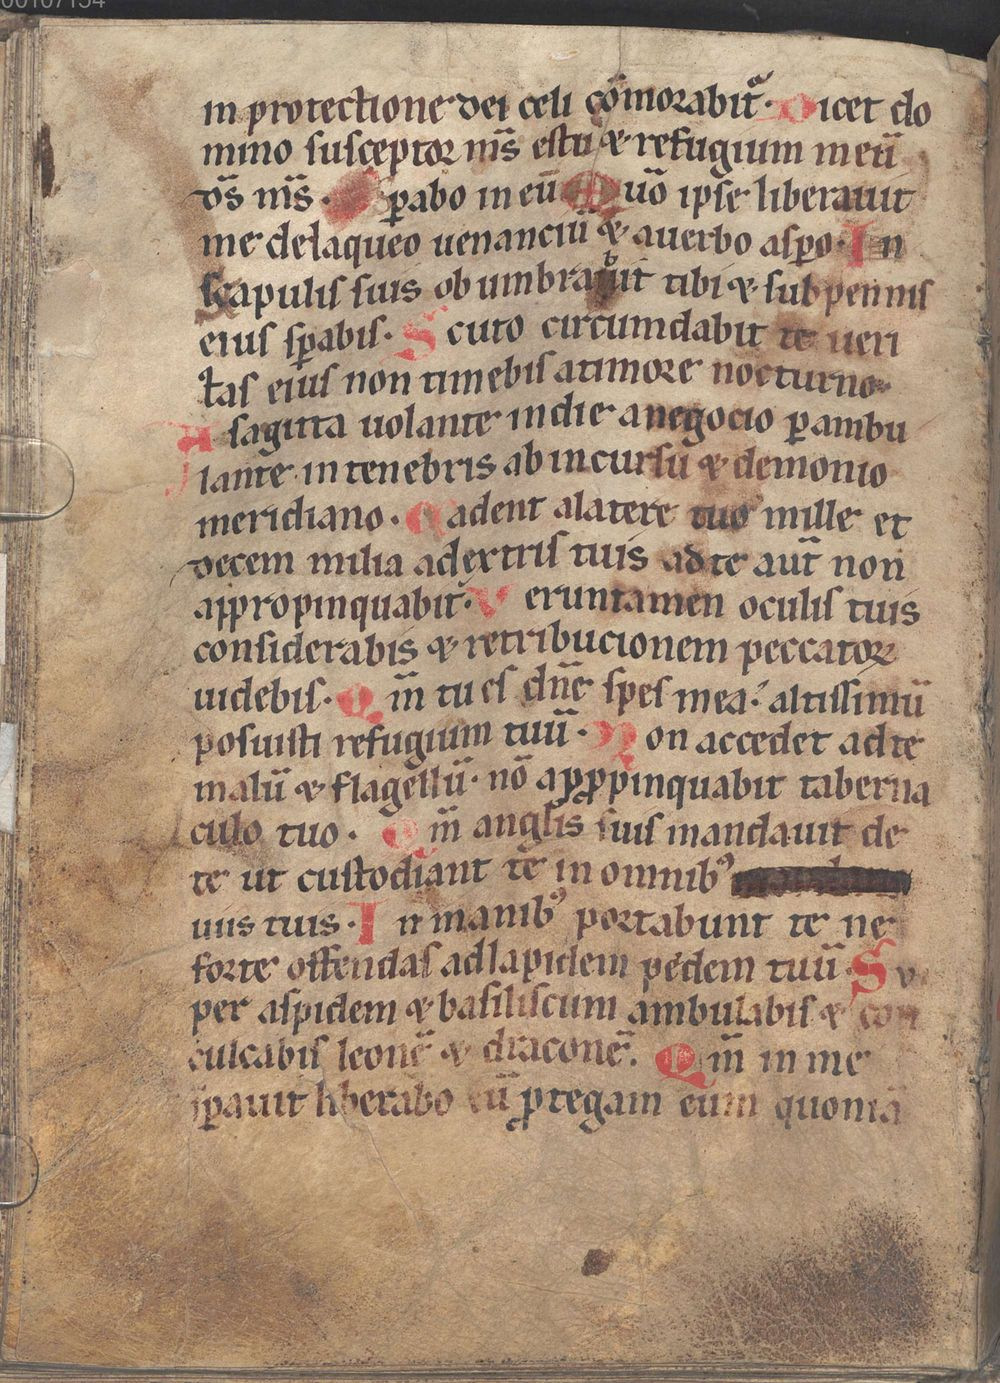 00107154
in protectione dei celi cōmorabit᷑. Dicet do
mino susceptor m̄s es tu ⁊ refugium meū
ds̄ m̄s. Sꝑabo in eū Quō ipse liberauit
me delaqueo uenanciū ⁊ auerbo asꝑo. In
scapulis suis obumbrabit tibi ⁊ sub pennis
eius sꝑabis. Scuto circumdabit te ueri
tas eius non timebis atimore nocturno.
A sagitta uolante indie anegocio ꝑambu
lante in tenebris ab incursu ⁊ demonio
meridiano. Cadent alatere tuo mille et
decem milia adextris tuis ad te aut̄ non
appropinquabit. Veruntamen oculis tuis
considerabis ⁊ retribucionem peccatoꝝ
uidebis. Qm̄ tu es dn̄e spes mea. altissimū
posuisti refugium tuū. Non accedet ad te
malū ⁊ flagellū. nō apꝓpinquabit taberna
culo tuo. Qm̄ anglis suis mandauit de
te ut custodiant te in omnibꝰ
uiis tuis. In manibꝰ portabunt te ne
forte offendas ad lapidem pedem tuū. Su
per aspidem ⁊ basiliscum ambulabis ⁊ con
culcabis leonē ⁊ draconē. Qm̄ in me
sꝑauit liberabo eū ꝓtegam eum quoniā